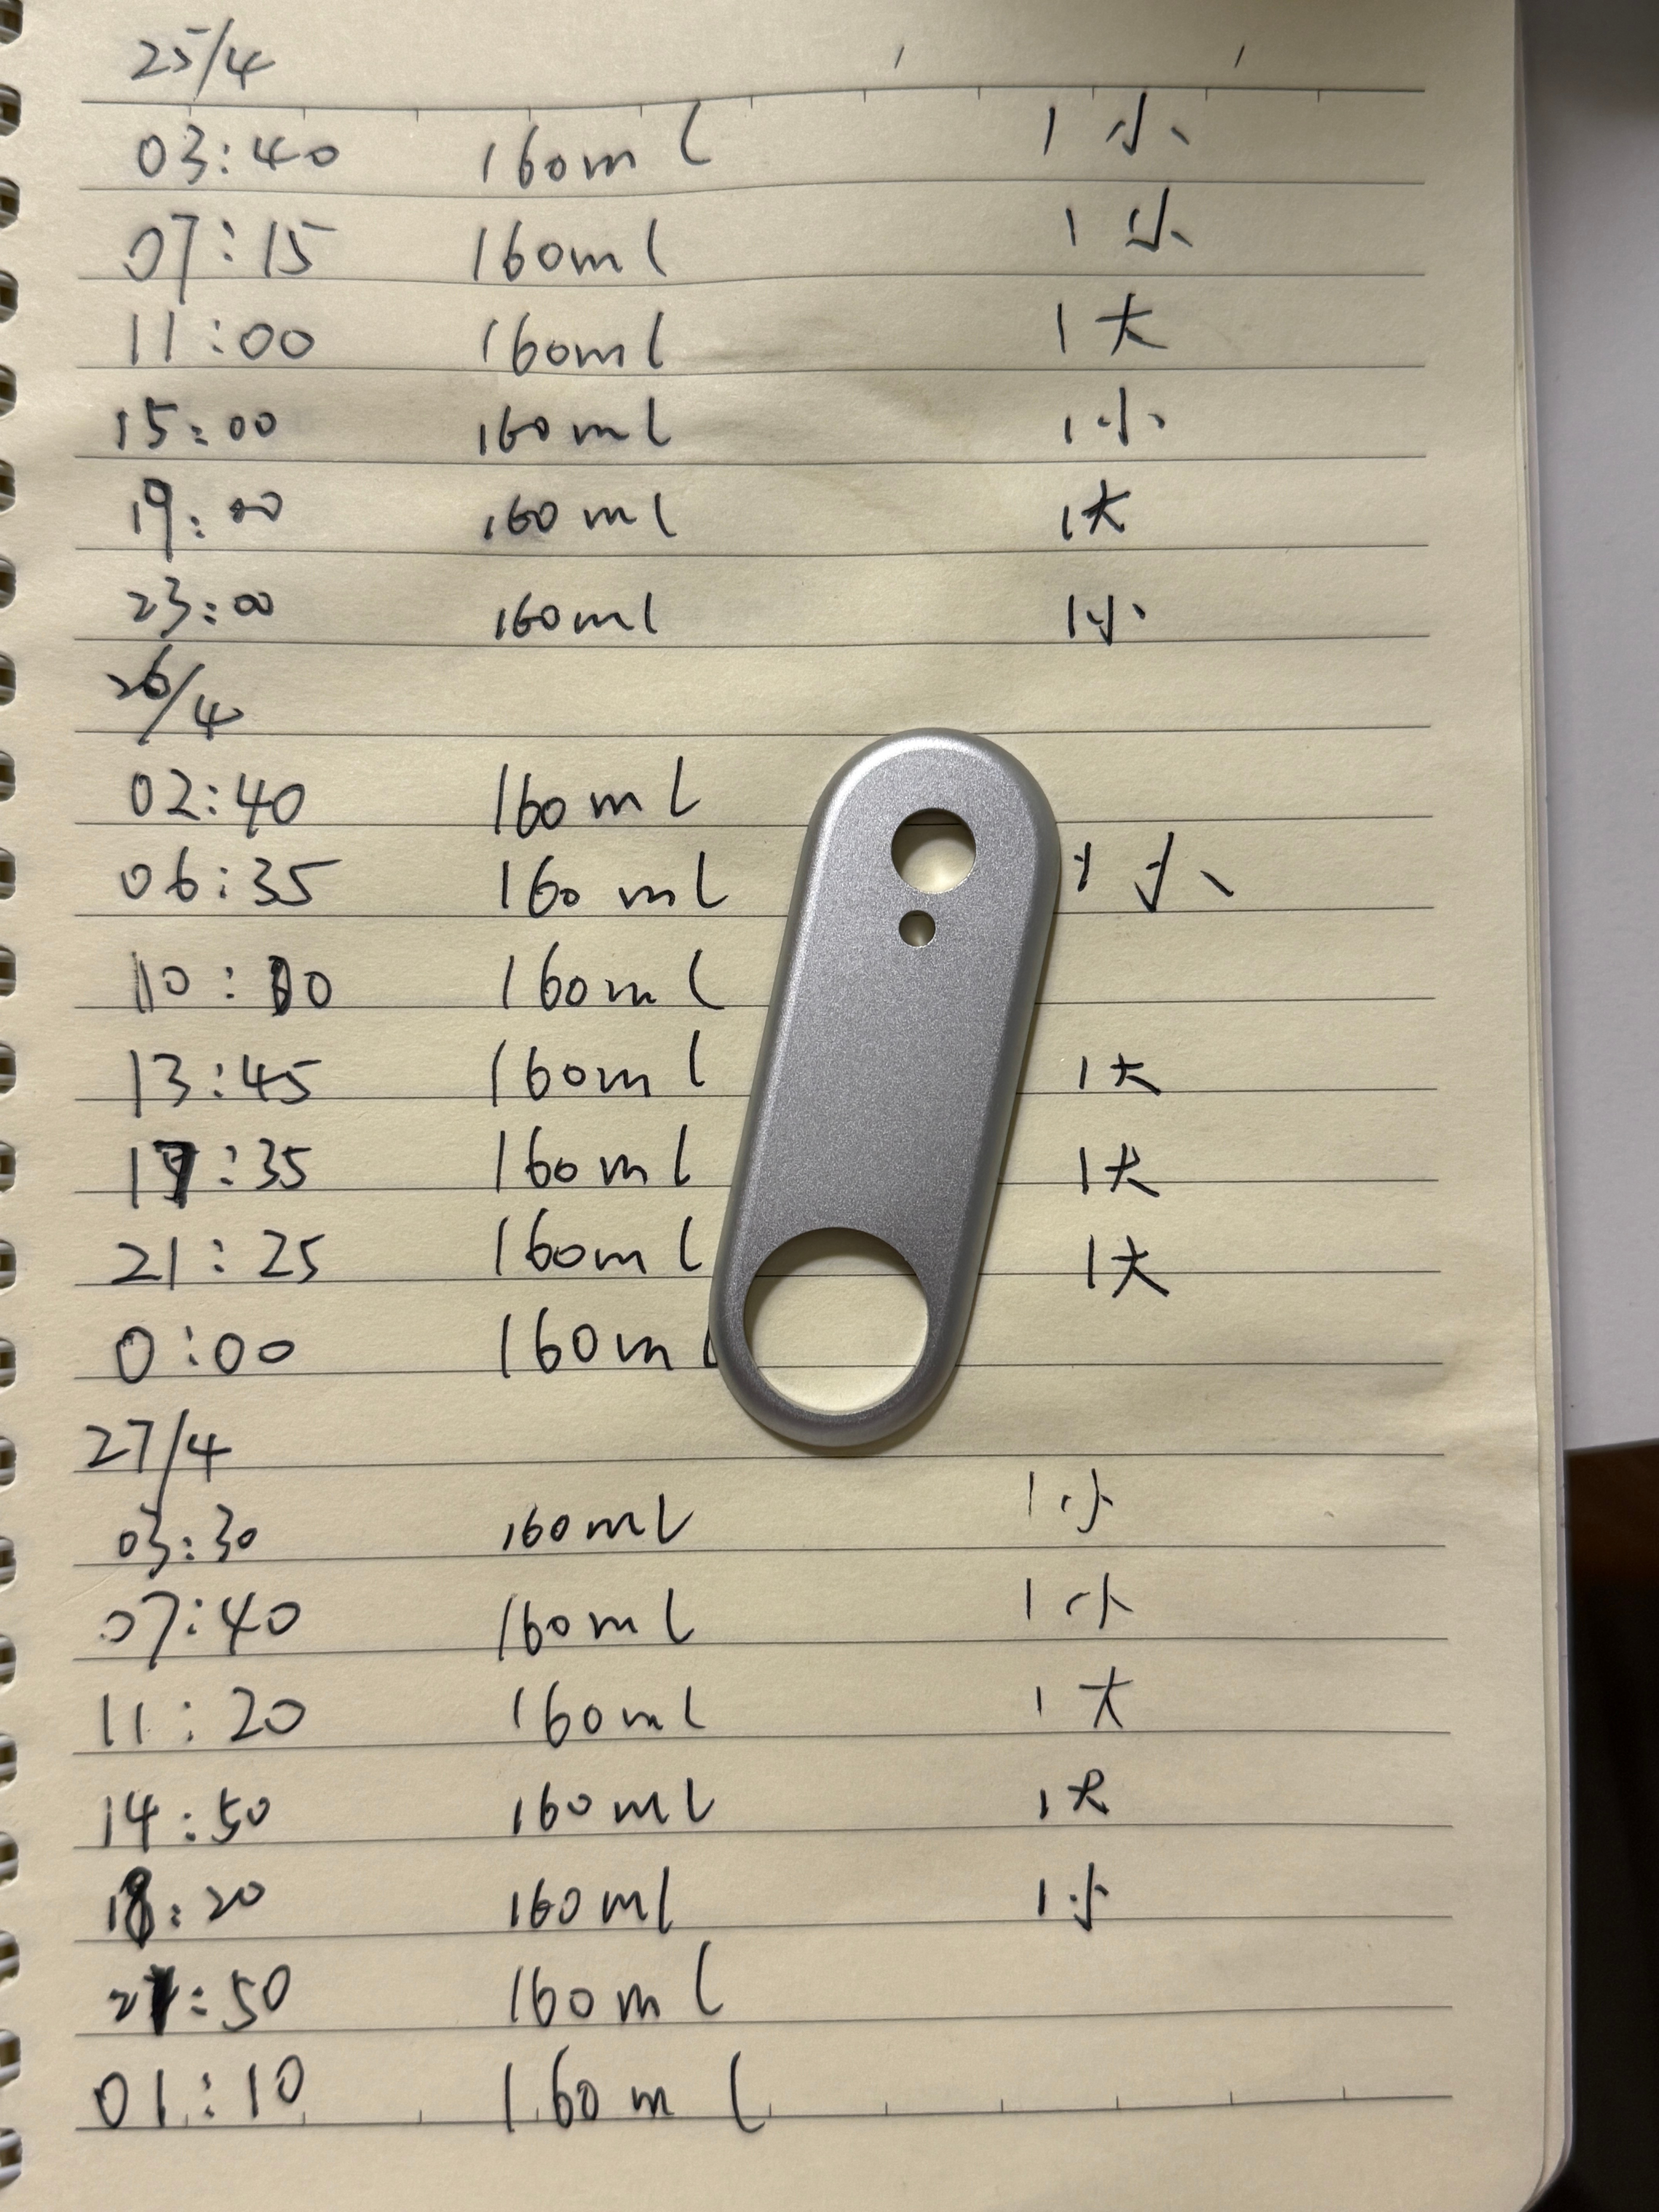 25/4
03:40 160ml 1小
07:15 160ml 1小
11:00 160ml 1大
15:00 160ml 1小
19:00 160ml 1大
23:00 160ml 1小
26/4
02:40 160ml
06:35 160ml 1小
10:10 160ml
13:45 160ml 1大
17:35 160ml 1大
21:25 160ml 1大
0:00 160ml
27/4
03:30 160ml 1小
07:40 160ml 1小
11:20 160ml 1大
14:50 160ml 1大
18:20 160ml 1小
21:50 160ml
01:10 160ml